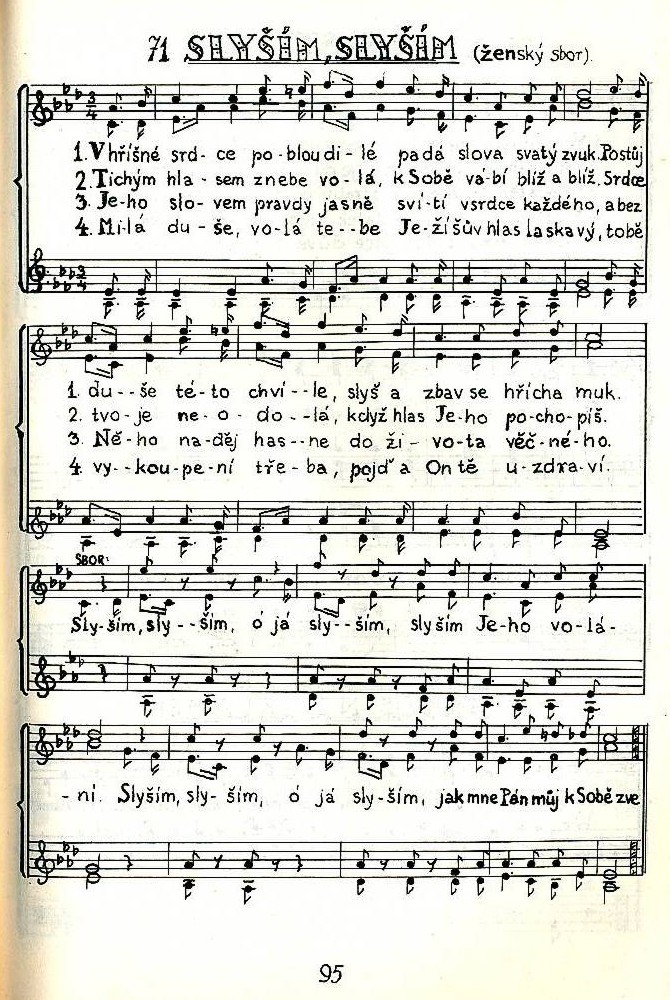 71 SLYŠÍM, SLYŠÍM (ženský sbor).
3/4
1. V hříšné srd- ce po-bloudi-lé padá slova svatý zvuk. Postůj
2. Tichým hla- sem z nebe vo-lá, k Sobě vá-bí blíž a blíž. Srdce
3. Je-ho slo- vem pravdy jasně sví-tí v srdce každého, a bez
4. Mi-lá du- še, vo-lá te--be Je-žíšův hlas laskavý, tobě
3/4
1. du--še té-to chví--le, slyš a zbav se hřícha muk.
2. tvo-je ne-o-do--lá, když hlas Je-ho po-cho-píš.
3. Ně-ho na-děj has--ne do ži-vo-ta věč-né-ho.
4. vy--kou-pe-ní tře-ba, pojď a On tě u-zdra-ví.
SBOR:
Sly-ším, sly--ším, ó já sly--ším, slyším Je-ho vo-lá-
-ní. Slyším, sly-ším, ó já sly-ším, jak mne Pán můj k Sobě zve
95